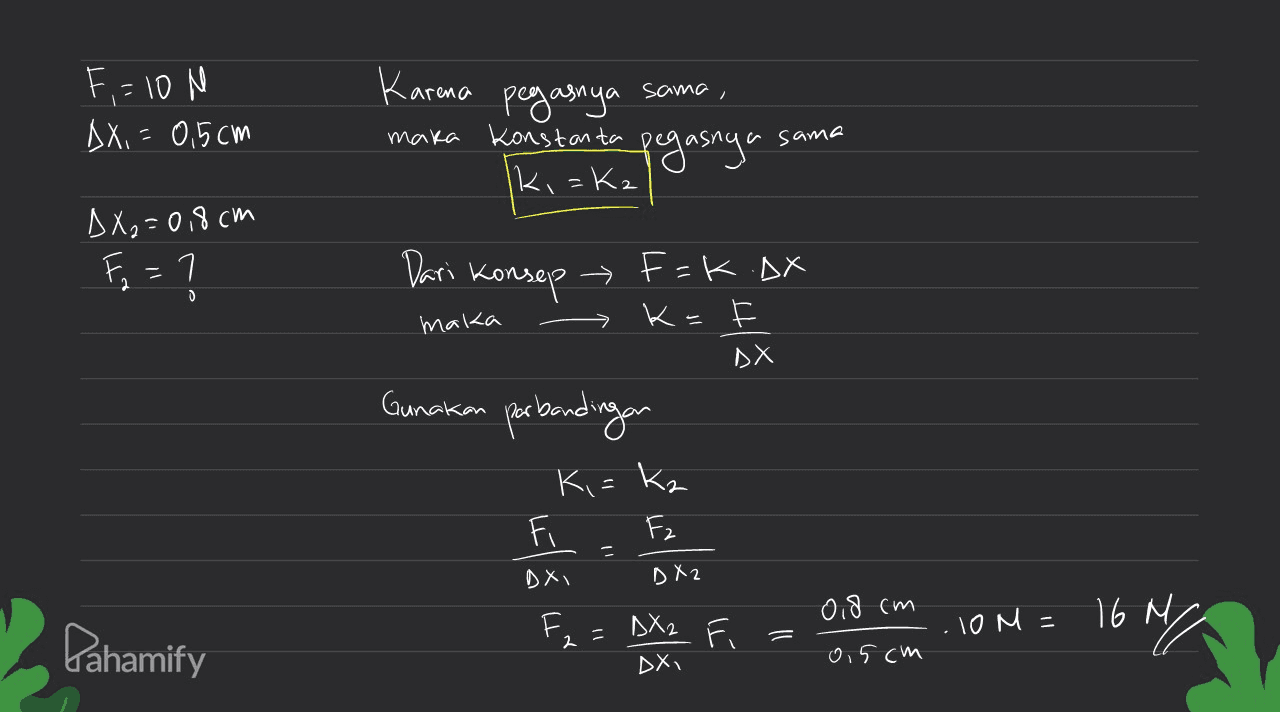 F₁ = 10 N
ΔX₁ = 0,5 cm
ΔX₂ = 0,8 cm
F₂ = ?
Karena pegasnya sama,
maka konstanta pegasnya sama
K₁ = K₂
Dari konsep → F = K . ΔX
maka → K = F / ΔX
Gunakan perbandingan
K₁ = K₂
F₁ / ΔX₁ = F₂ / ΔX₂
F₂ = ΔX₂ / ΔX₁ F₁ = 0,8 cm / 0,5 cm . 10 N = 16 N
Pahamify